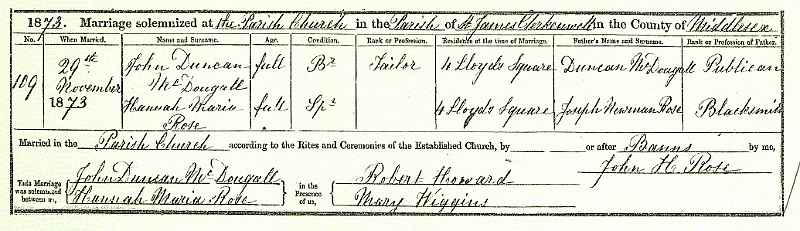 1873. Marriage solemnized at the Parish Church in the Parish of St James Clerkenwell in the County of Middlesex
No. When Married. Name and Surname. Age. Condition. Rank or Profession. Residence at the time of Marriage. Father's Name and Surname. Rank or Profession of Father.
109 29th November 1873 John Duncan McDougall full Br Tailor 4 Lloyds Square Duncan McDougall Publican
Hannah Maria Rose full Spr 4 Lloyds Square Joseph Newman Rose Blacksmith
Married in the Parish Church according to the Rites and Ceremonies of the Established Church, by or after Banns by me,
John H. Rose
This Marriage was solemnized between us, John Duncan McDougall Hannah Maria Rose in the Presence of us, Robert Howard Mary Higgins